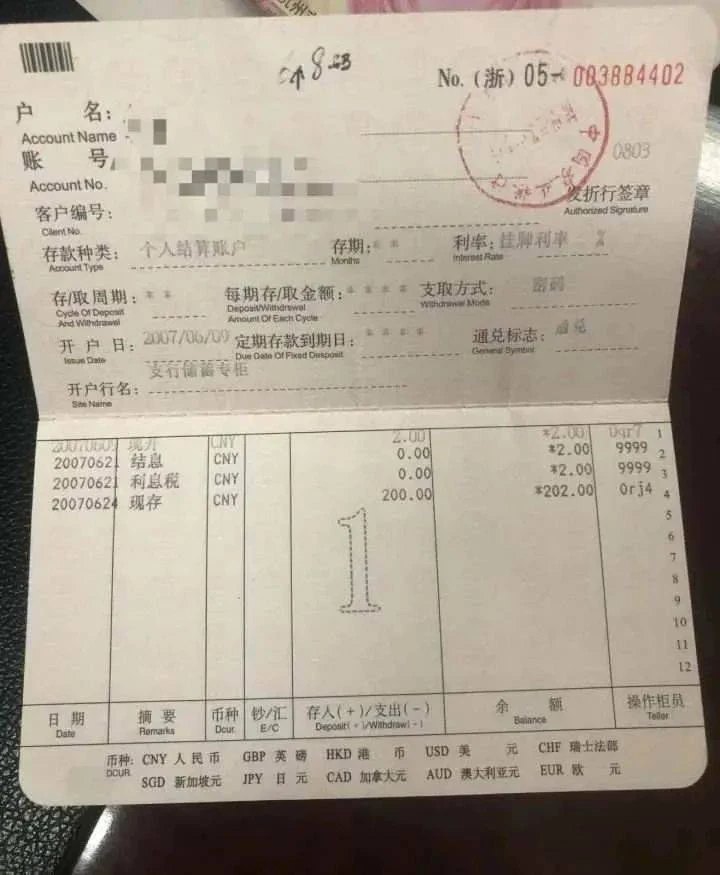 No. (浙) 05- 003884402
户 名:
Account Name
0803
账 号
Account No.
发折行签章
Authorized Signature
客户编号:
Client No.
存款种类: 个人结算账户 存期: * * 利率: 挂牌利率 %
Account Type Months Interest Rate
存/取周期: * * 每期存/取金额: * * * * 支取方式: 密码
Cycle Of Deposit And Withdrawal Deposit/Withdrawal Amount Of Each Cycle Withdrawal Mode
开 户 日: 2007/06/09 定期存款到期日: * * * * 通兑标志: 通兑
Issue Date Due Date Of Fixed Desposit General Symbol
开户行名: 支行储蓄专柜
Site Name
20070609 现开 CNY 2.00 *2.00 0qr7 1
20070621 结息 CNY 0.00 *2.00 9999 2
20070621 利息税 CNY 0.00 *2.00 9999 3
20070624 现存 CNY 200.00 *202.00 0rj4 4
5
6
7
8
9
10
11
12
1
日 期 摘 要 币种 钞/汇 存入(+)/支出(-) 余 额 操作柜员
Date Remarks Dcur. E/C Deposit(+)/Withdraw(-) Balance Teller
币种: CNY 人 民 币 GBP 英 镑 HKD 港 币 USD 美 元 CHF 瑞士法郎
DCUR. SGD 新加坡元 JPY 日 元 CAD 加拿大元 AUD 澳大利亚元 EUR 欧 元